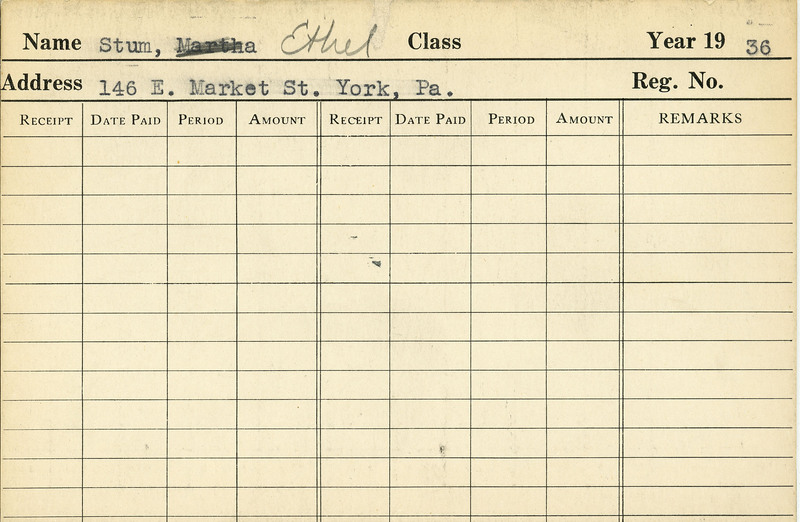 Name Stum, Martha Ethel Class Year 19 36
Address 146 E. Market St. York, Pa. Reg. No.
RECEIPT DATE PAID PERIOD AMOUNT RECEIPT DATE PAID PERIOD AMOUNT REMARKS